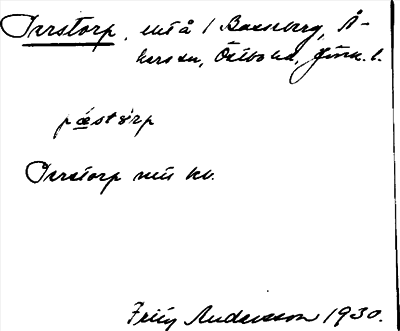 Perstorp, utså i Basseberg, Å-
kers sn, Östbo hd, Jönk. l.
pæ̀stårp
Perstorp mtt kb.
Fritz Andersson 1930.